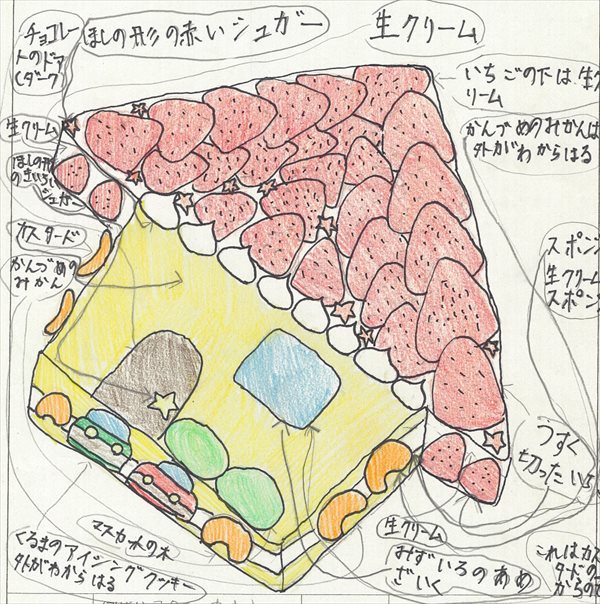 チョコレー
トのドア
(ダーク
ほしの形の赤いシュガー
生クリーム
いちごの下は生ク
リーム
かんづめのみかんは
外がわからはる
生クリーム
ほしの形
のきいろい
シュガー
カスタード
かんづめの
みかん
スポンジ
生クリーム
スポンジ
うすく
切ったいち
マスカットの木
くるまのアイシングクッキー
外がわからはる
生クリーム
みずいろのあめ
ざいく
これはカス
タードの
からの